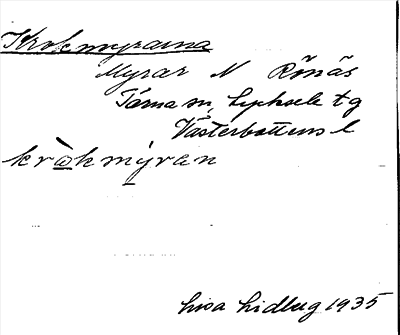 Krokmyrarna
Myrar N Rönäs
Tärna sn, Lycksele tg
Västerbottens l
kròkmýran
Lisa Lidberg 1935